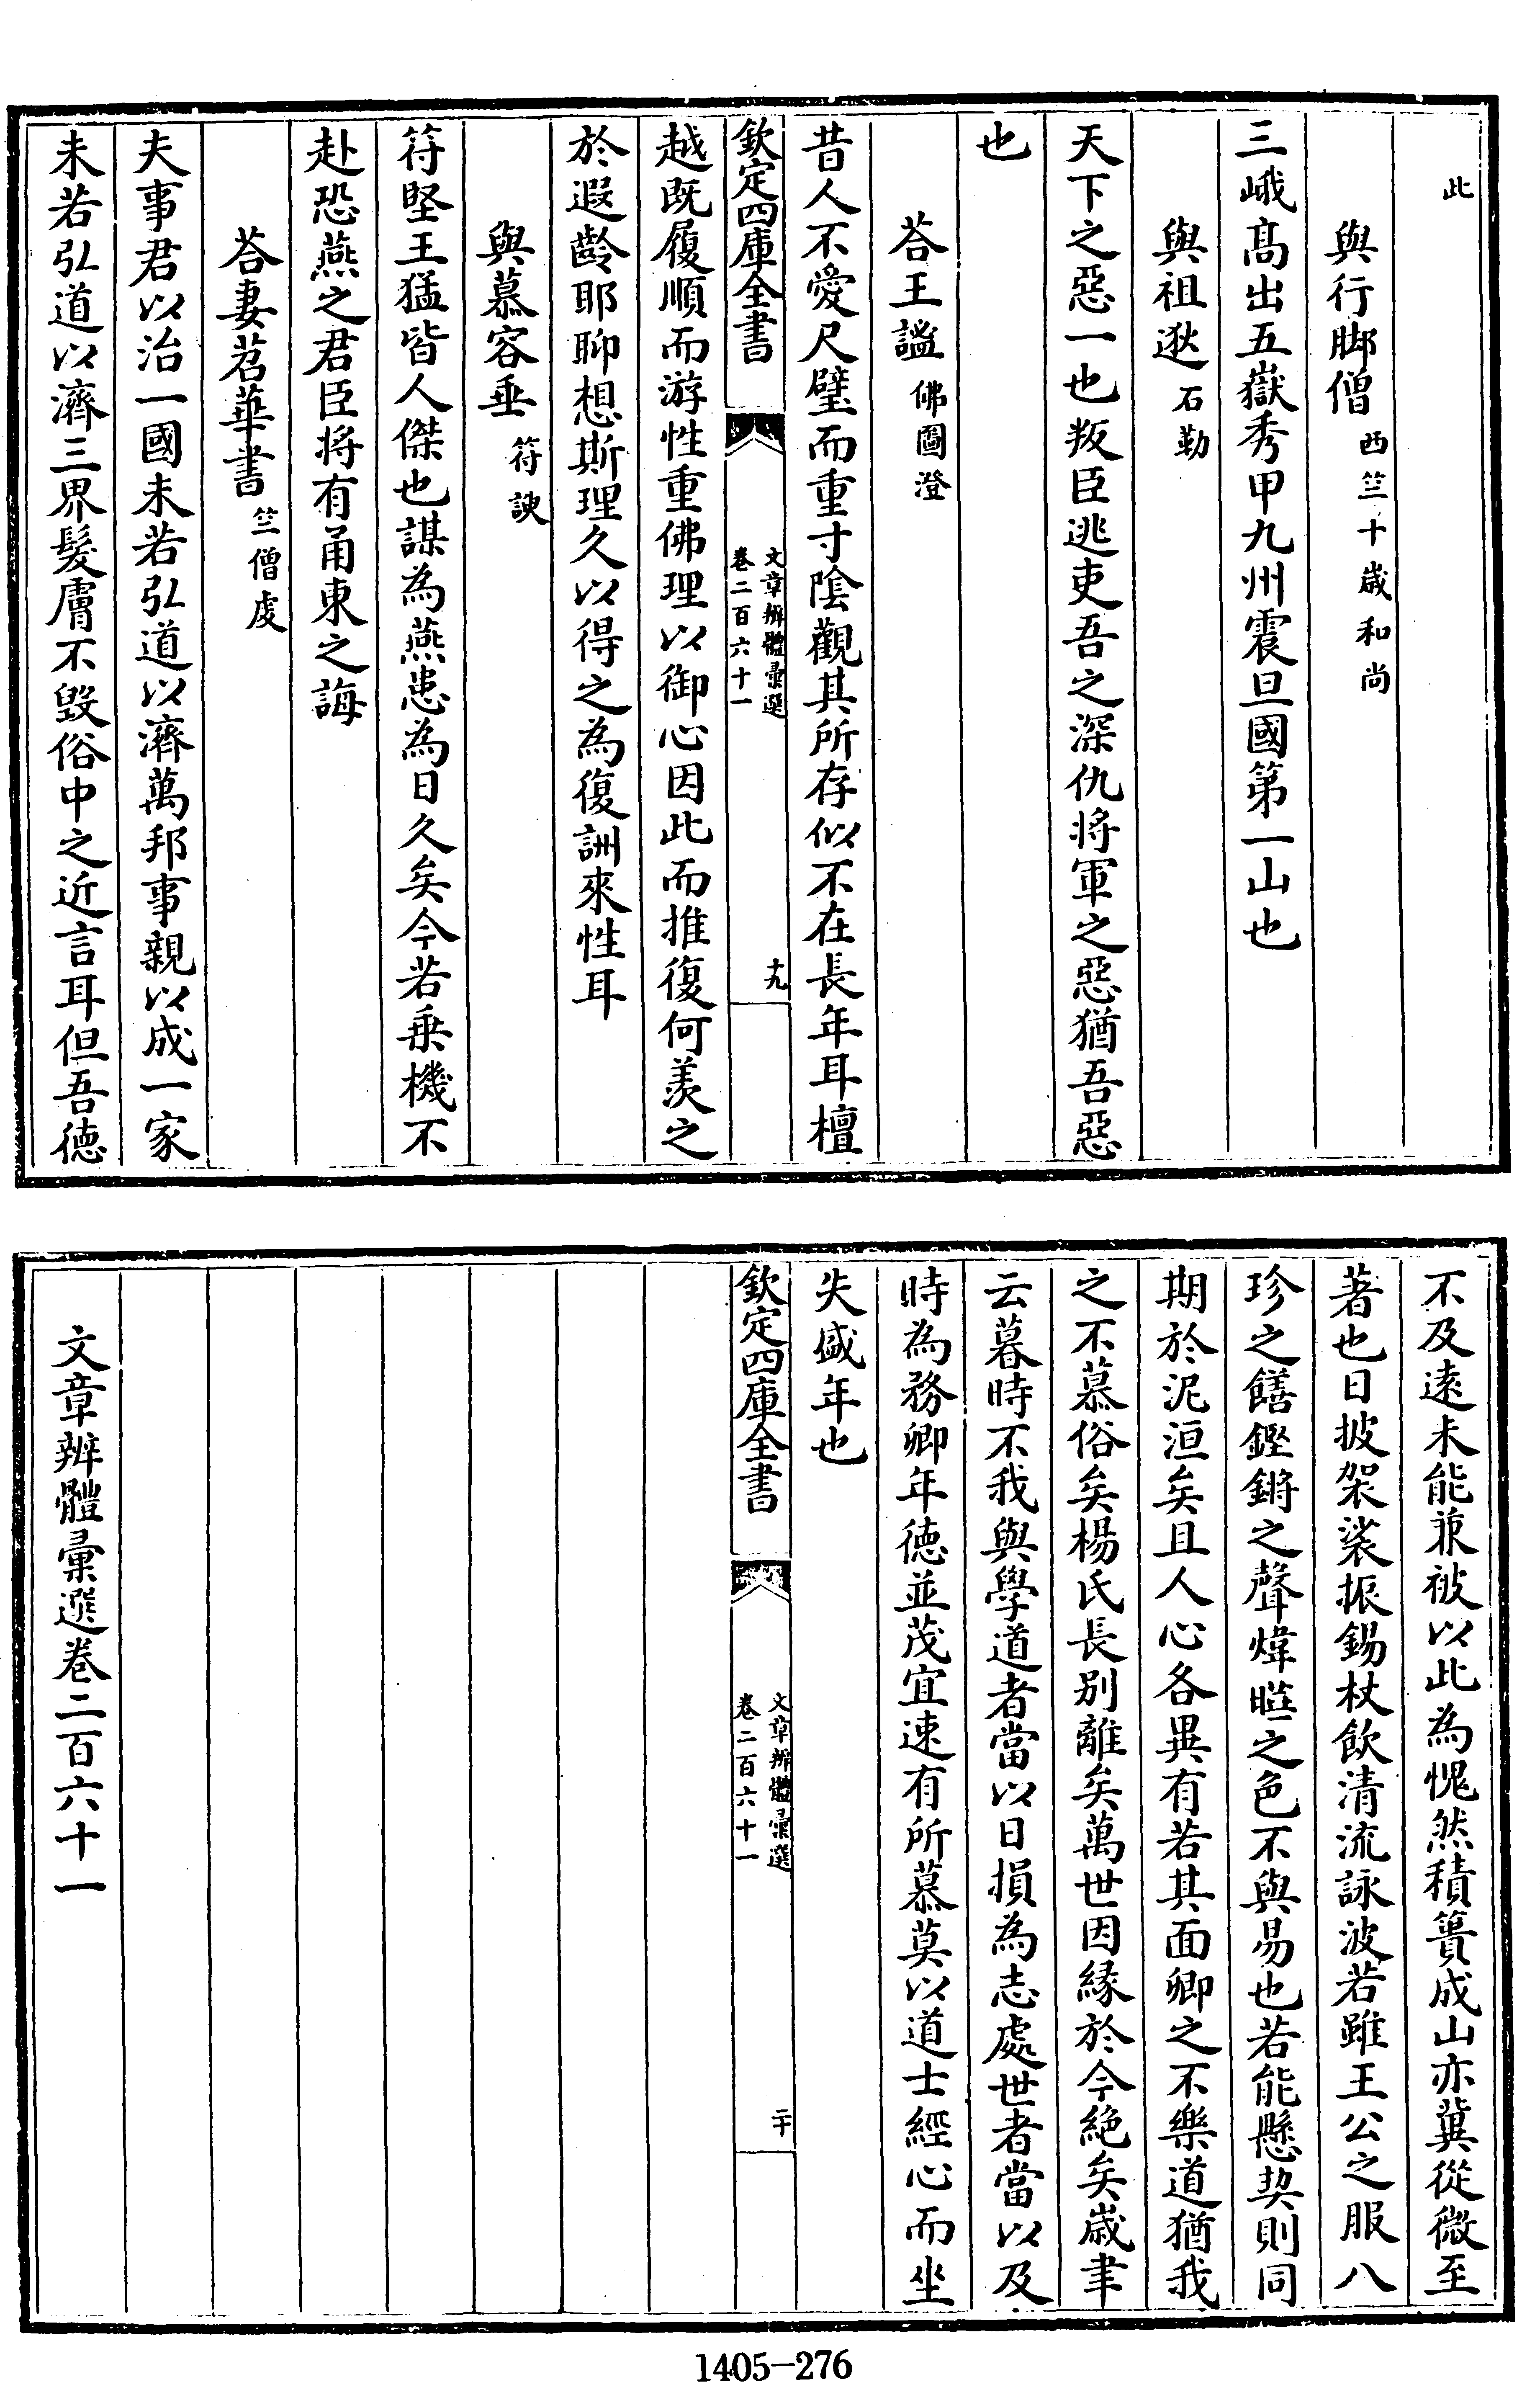 此
與行脚僧西竺十歲和尚
三峨髙出五嶽秀甲九州震旦國第一山也
與祖逖石勒
天下之惡一也叛臣逃吏吾之深仇將軍之惡猶吾惡
也
荅王謐佛圖澄
昔人不愛尺璧而重寸隂觀其所存似不在長年耳檀
欽定四庫全書
文章辨體彚選
卷二百六十一
十九
越既履順而游性重佛理以御心因此而推復何羨之
於遐齡耶聊想斯理久以得之為復詶來性耳
與慕容垂符諛
符堅王猛皆人傑也謀為燕患為日久矣今若乗機不
赴恐燕之君臣将有甬東之誨
荅妻苕華書竺僧度
夫事君以治一國未若弘道以濟萬邦事親以成一家
未若弘道以濟三界髮膚不毀俗中之近言耳但吾徳
不及逺未能兼被以此為愧然積簣成山亦冀從微至
著也日披袈裟振錫杖飲清流詠波若雖王公之服八
珍之饍鏗鏘之聲煒曄之色不與易也若能懸契則同
期於泥洹矣且人心各異有若其面卿之不樂道猶我
之不慕俗矣楊氏長别離矣萬世因緣於今絶矣歳聿
云暮時不我與學道者當以日損為志處世者當以及
時為務卿年徳並茂宜速有所慕莫以道士經心而坐
失盛年也
欽定四庫全書
文章辨體彚選
卷二百六十一
二十
文章辨體彚選卷二百六十一
1405-276